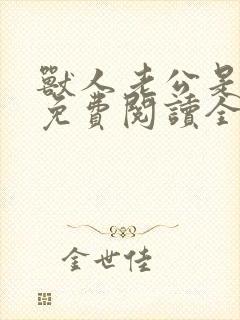 獸人老公是
免費閱讀全
金世佳